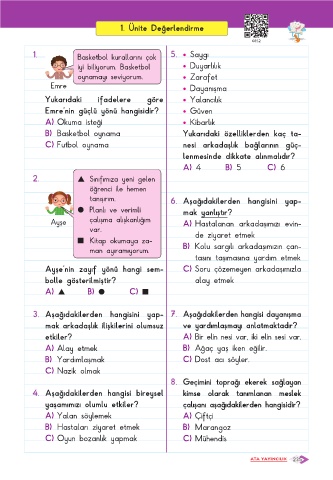 1. Ünite Değerlendirme
1.
Basketbol kurallarını çok
iyi biliyorum. Basketbol
oynamayı seviyorum.
Emre
Yukarıdaki ifadelere göre
Emre'nin güçlü yönü hangisidir?
A) Okuma isteği
B) Basketbol oynama
C) Futbol oynama
2.
▲ Sınıfımıza yeni gelen
öğrenci ile hemen
tanışırım.
● Planlı ve verimli
çalışma alışkanlığım
var.
■ Kitap okumaya za-
man ayıramıyorum.
Ayşe
Ayşe'nin zayıf yönü hangi sem-
bolle gösterilmiştir?
A) ▲ B) ● C) ■
3. Aşağıdakilerden hangisini yap-
mak arkadaşlık ilişkilerini olumsuz
etkiler?
A) Alay etmek
B) Yardımlaşmak
C) Nazik olmak
4. Aşağıdakilerden hangisi bireysel
yaşamımızı olumlu etkiler?
A) Yalan söylemek
B) Hastaları ziyaret etmek
C) Oyun bozanlık yapmak
5. • Saygı
• Duyarlılık
• Zarafet
• Dayanışma
• Yalancılık
• Güven
• Kibarlık
Yukarıdaki özelliklerden kaç ta-
nesi arkadaşlık bağlarının güç-
lenmesinde dikkate alınmalıdır?
A) 4 B) 5 C) 6
6. Aşağıdakilerden hangisini yap-
mak yanlıştır?
A) Hastalanan arkadaşımızı evin-
de ziyaret etmek
B) Kolu sargılı arkadaşımızın çan-
tasını taşımasına yardım etmek
C) Soru çözemeyen arkadaşımızla
alay etmek
7. Aşağıdakilerden hangisi dayanışma
ve yardımlaşmayı anlatmaktadır?
A) Bir elin nesi var, iki elin sesi var.
B) Ağaç yaş iken eğilir.
C) Dost acı söyler.
8. Geçimini toprağı ekerek sağlayan
kimse olarak tanımlanan meslek
çalışanı aşağıdakilerden hangisidir?
A) Çiftçi
B) Marangoz
C) Mühendis
ATA YAYINCILIK